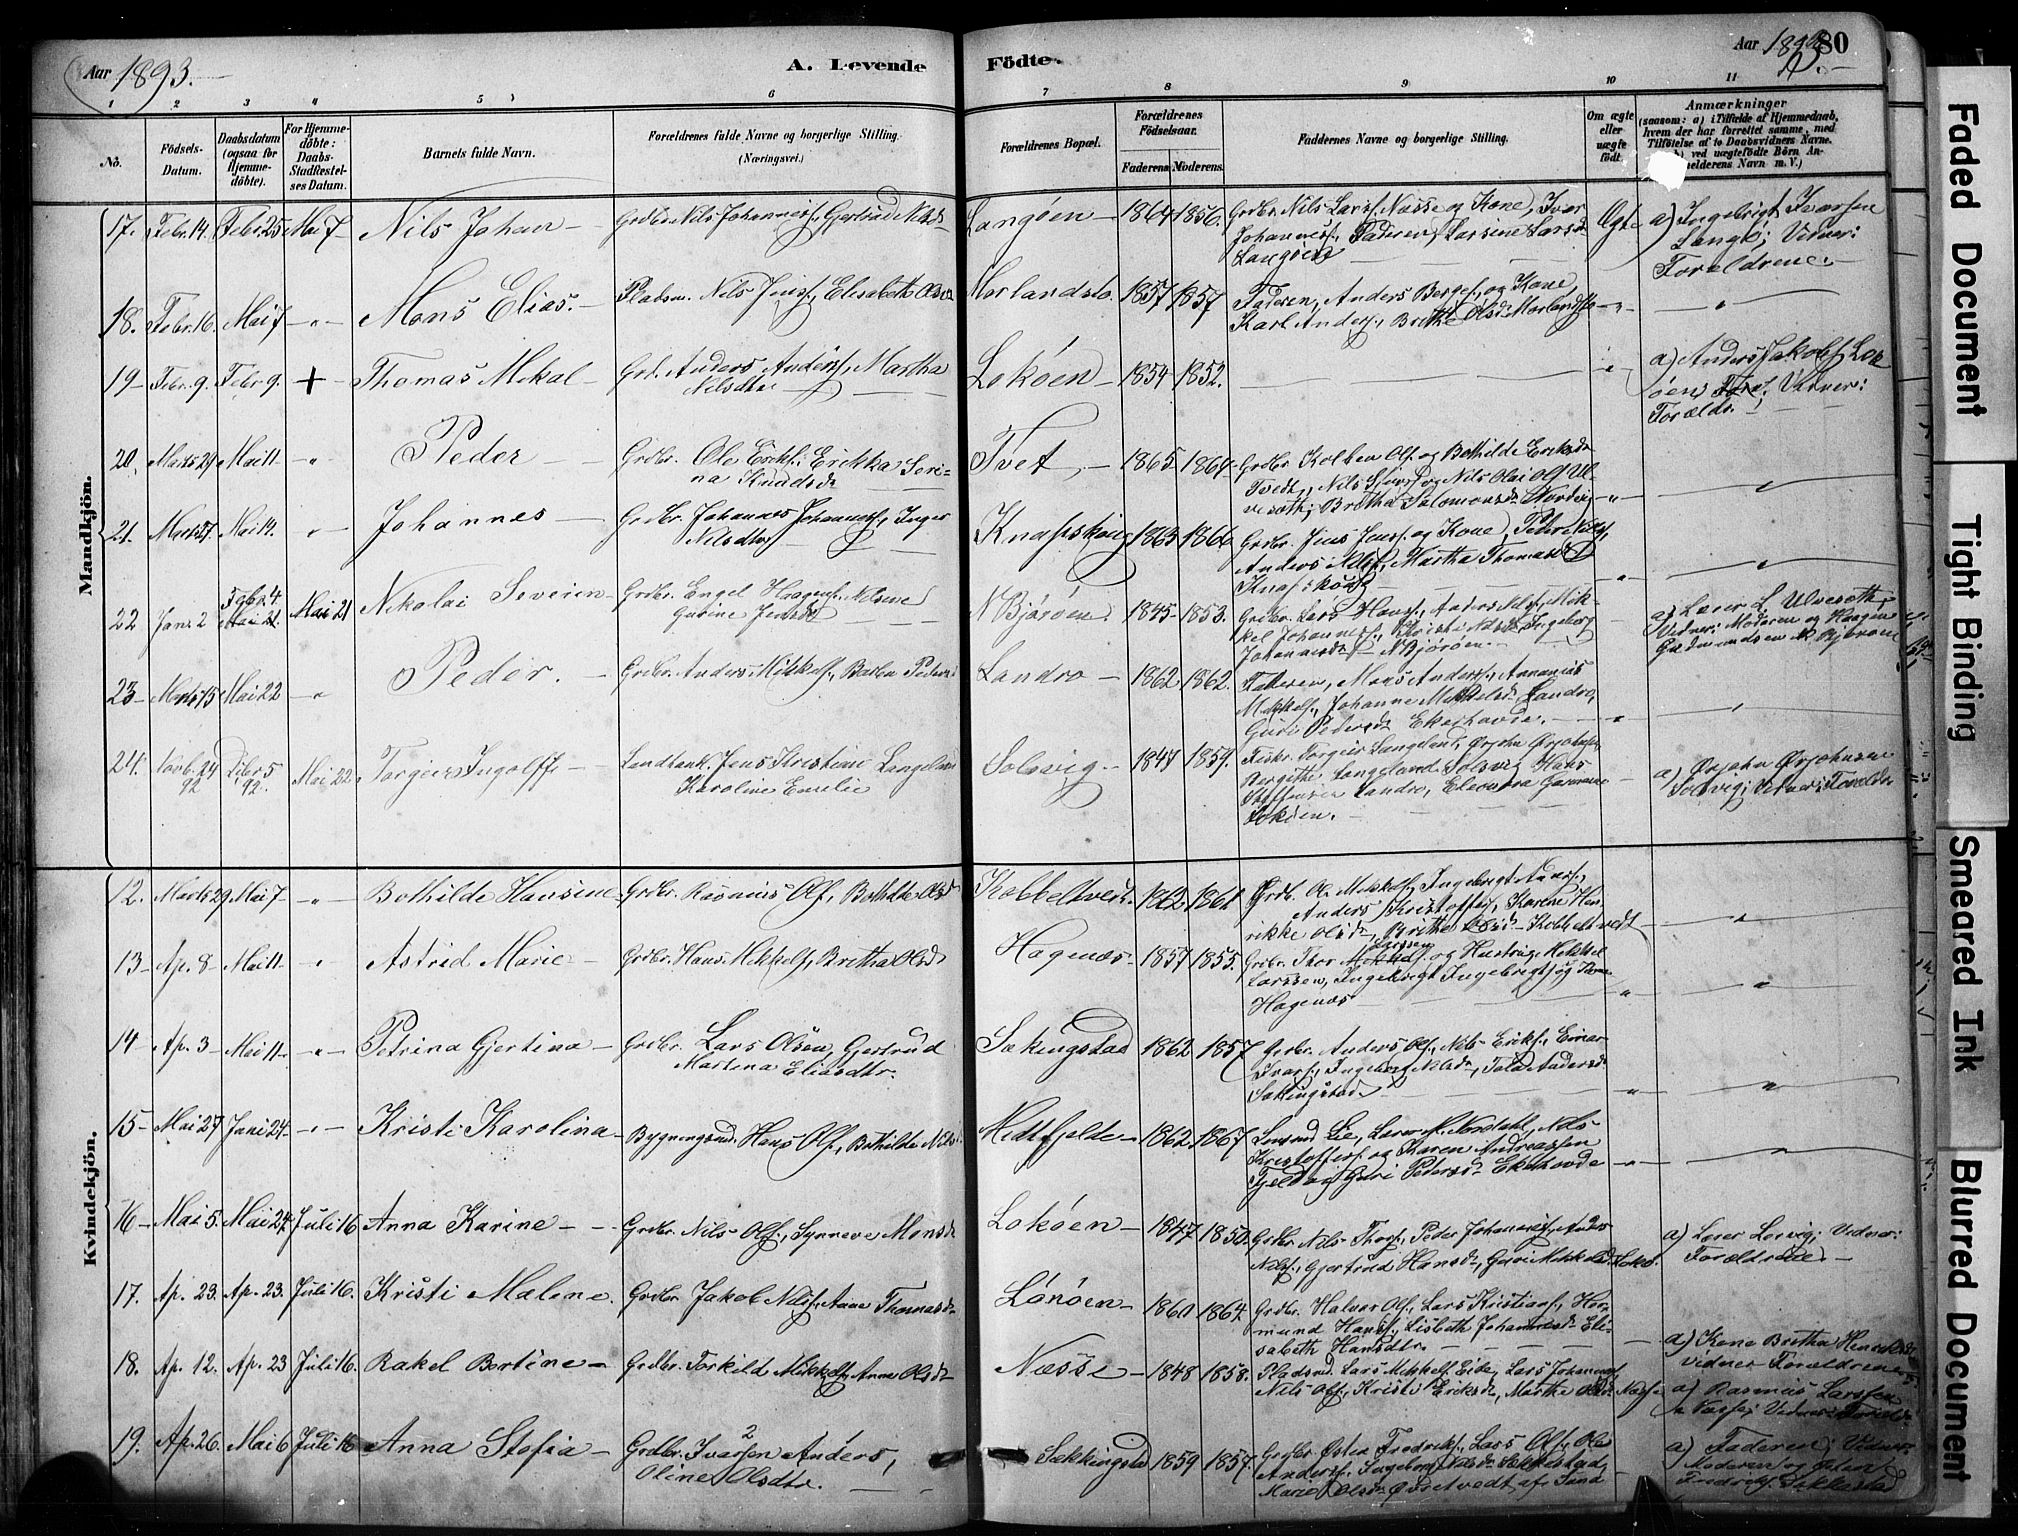 Aar 1893.
A. Levende
Födte.
Aar 1893
80
1 2 3 4 5 6 7 8 9 10 11
No.
Födsels-
Datum.
Daabsdatum
(ogsaa for
Hjemme-
döbte).
For Hjemme-
döbte:
Daabs-
Stadfæstel-
ses Datum.
Barnets fulde Navn.
Forældrenes fulde Navne og borgerlige Stilling.
(Næringsvei.)
Forældrenes Bopæl.
Forældrenes
Födselsaar.
Faderens Moderens.
Faddernes Navne og borgerlige Stilling.
Om ægte
eller
uægte
födt.
Anmærkninger
(saasom: a) i Tilfælde af Hjemmedaab,
hvem der har forrettet samme, med
Tilföielse af to Daabsvidners Navne.
b) ved uægtefödte Börn An-
melderens Navn m. V.)
Mandkjön.
17. Febr. 14. Febr. 25 Mai 7 Nils Johan Grdbr. Nils Johannesf., Gjertrud Nilsd.
Langöen 1864 1856. Grdbr. Nils Larsf. Næsse og Kone, Iver
Johannesf., Faderen, Larsine Larsd.
Langöen
Ægte a) Ingebrigt Ivarsen
Langö; Vidner:
Forældrene.
18. Febr. 16. Mai 7 " Mons Elias. Pladsm. Nils Jensf., Elisabeth Olsd.
Morlandsto. 1857 1857 Faderen, Anders Bergef., og Kone,
Karl Andersf., Brithe Olsd. Morlandsto " "
19 Febr. 9. Febr. 9. + Thomas Mikal Grd. Anders Andersf., Martha
Nilsdtr.
Loköen 1854 1852. " a) Anders Jakobsf. Lok
öen, Vidner:
Forældr.
20. Marts 29 Mai 11 " Peder Grdbr. Ole Eriksf., Erikka Seri-
na Knudsd.
Tvet 1865 1864 Grdbr. Kolben Olf. og Bothilde Eriksd.
Tvedt, Nils og Nils Olai Olf. Ul-
vesæth; Britha Salomonsd. " "
21. Marts 27. Mai 14. " Johannes Grdbr. Johannes Johannesf., Inger
Nilsdtr.
Knapskoug 1863 1866 Grdbr. Jens Jensf. og Kone, Peder Nilsf.,
Anders Nilsf., Martha Thomasd.
Knapskoug " "
22 Jan. 2 Febr. 4 Mai 21. Mai 21 Nikolai Severin Grdbr. Engel Haagensf., Nilsine
Gurine Jensd.
N Björöen. 1845 1853. Grdbr. Lars Hansf., Anders Nilsf., Mik-
kel Johannesf., Kristi Nilsd., Ingeborg
Johannesd. N Björöen.
a) Lærer L. Ulveseth;
Vidner: Moderen og Haagen
Gudmundsen N. Björöen
23 Marts 15 Mai 22 " Peder. Grdbr. Anders Mikkelf., Barbra Pedersd.
Landro 1862 1862. Faderen, Mons Andersf., Annanias
Mikkelf., Johanne Mikkelsd. Landro,
Guri Pedersd. Ekerhovde. " "
24. Novb. 24 92 Dcbr. 5 92. Mai 22 Torgeir Ingolff Landhank. Jens Kristian Langeland
Karoline Emilie
Solsvig. 1847 1859. Fiskr. Torgeir Langeland, Örjahn Örjahnsen,
Bergithe Langeland Solsvig, Hans
Steffensen Landro, Eleonora
Loköen.
a) Örjahn Örjahnsen
Solsvig; Vidner: Forældr.
Kvindekjön.
12. Marts 29 Mai 7 " Bothilde Hansine Grdbr. Rasmus Olf., Bothilde Olsd.
Kobbeltvedt. 1862 1861 Grdb. Ole Mikkelf., Ingebrigt Andersf.,
Anders Kristoffersf., Karene Hen-
rikke Olsd., Brithe Olsd. Kobbeltvedt "
13 Ap. 8 Mai 11 " Astrid Marie Grdbr. Hans Mikkelf., Britha Olsd.
Hagenæs 1857 1855. Grdbr. Thor Larssen og Hustru, Mikkel
Larssen, Ingebrigt Ingebrigtsf. og Kone
Hagenæs " "
14 Ap. 3 Mai 11 " Petrina Gjertina Grdbr. Lars Olsen, Gjertrud
Martina Eliasdtr.
Sækingstad 1862 1857 Grdbr. Anders Olf., Nils Eriksf., Einar
Ivarsf., Ingeborg Nilsd., Andersd.
Sækingstad " "
15 Mai 27 Juni 24 " Kristi Karolina Bygningssnd. Hans Olf., Bothilde Nilsd.
Midtfjelde 1862 1867 Lensmd. Lie, Lærer M. Nordahl, Nils
Kristoffersf. og Karen Andreassen
Fjeldvig, Guri Pedersd. Ekerhovde " "
16 Mai 5. Mai 27 Juli 16 Anna Karine Grdbr. Nils Olf., Synneve Monsd.
Loköen 1847 1850. Grdbr. Nils Thorsf., Peder Johannesf., Anders
Nilsf., Gjertrud Hansd., Guri Mikkelsd. Lokö.
a) Lærer Lervig; Vidner:
Forældrene
17. Ap. 23. Ap. 23. Juli 16. Kristi Malene. Grdbr. Jakob Nilsf., Anne Thomasd.
Lönöen 1860 1864. Grdbr. Halvor Olf., Lars Kristiansf., Her-
mund Hansf., Lisbeth Johannesd., Eli-
sabeth Hansdtr.
a) Kone Britha Henriksd.
Vidner Forældrene
18. Ap. 12. Ap. 23 Juli 16. Rakel Bertine Grdbr. Torkild Mikkelf., Anna Olsd.
Næsse 1848 1858. Pladsmd. Lars Mikkelf. Eide, Lars Johannesf.
Nils Olf., Kristi Eriksd., Marthe Olsd. Næsse
a) Rasmus Larssen
Næsse; Vidner: Foreld.
19. Ap. 26. Mai 6 Juli 16 Anna Stofia Grdbr. Ivarsen Anders,
2 1
Oline Olsdtr.
Sækkingstad 1859 1857. Grdbr. Östen Fredriksf., Lars Olf., Ole
Andersf., Ingeborg Nilsd. Sækkestad,
Marie Olsd. Övretvedt af Sund
a) Faderen; Vidner:
Moderen og
Fredriksf. Sekkestad
Faded Document
Tight Binding
Smeared Ink
Blurred Document